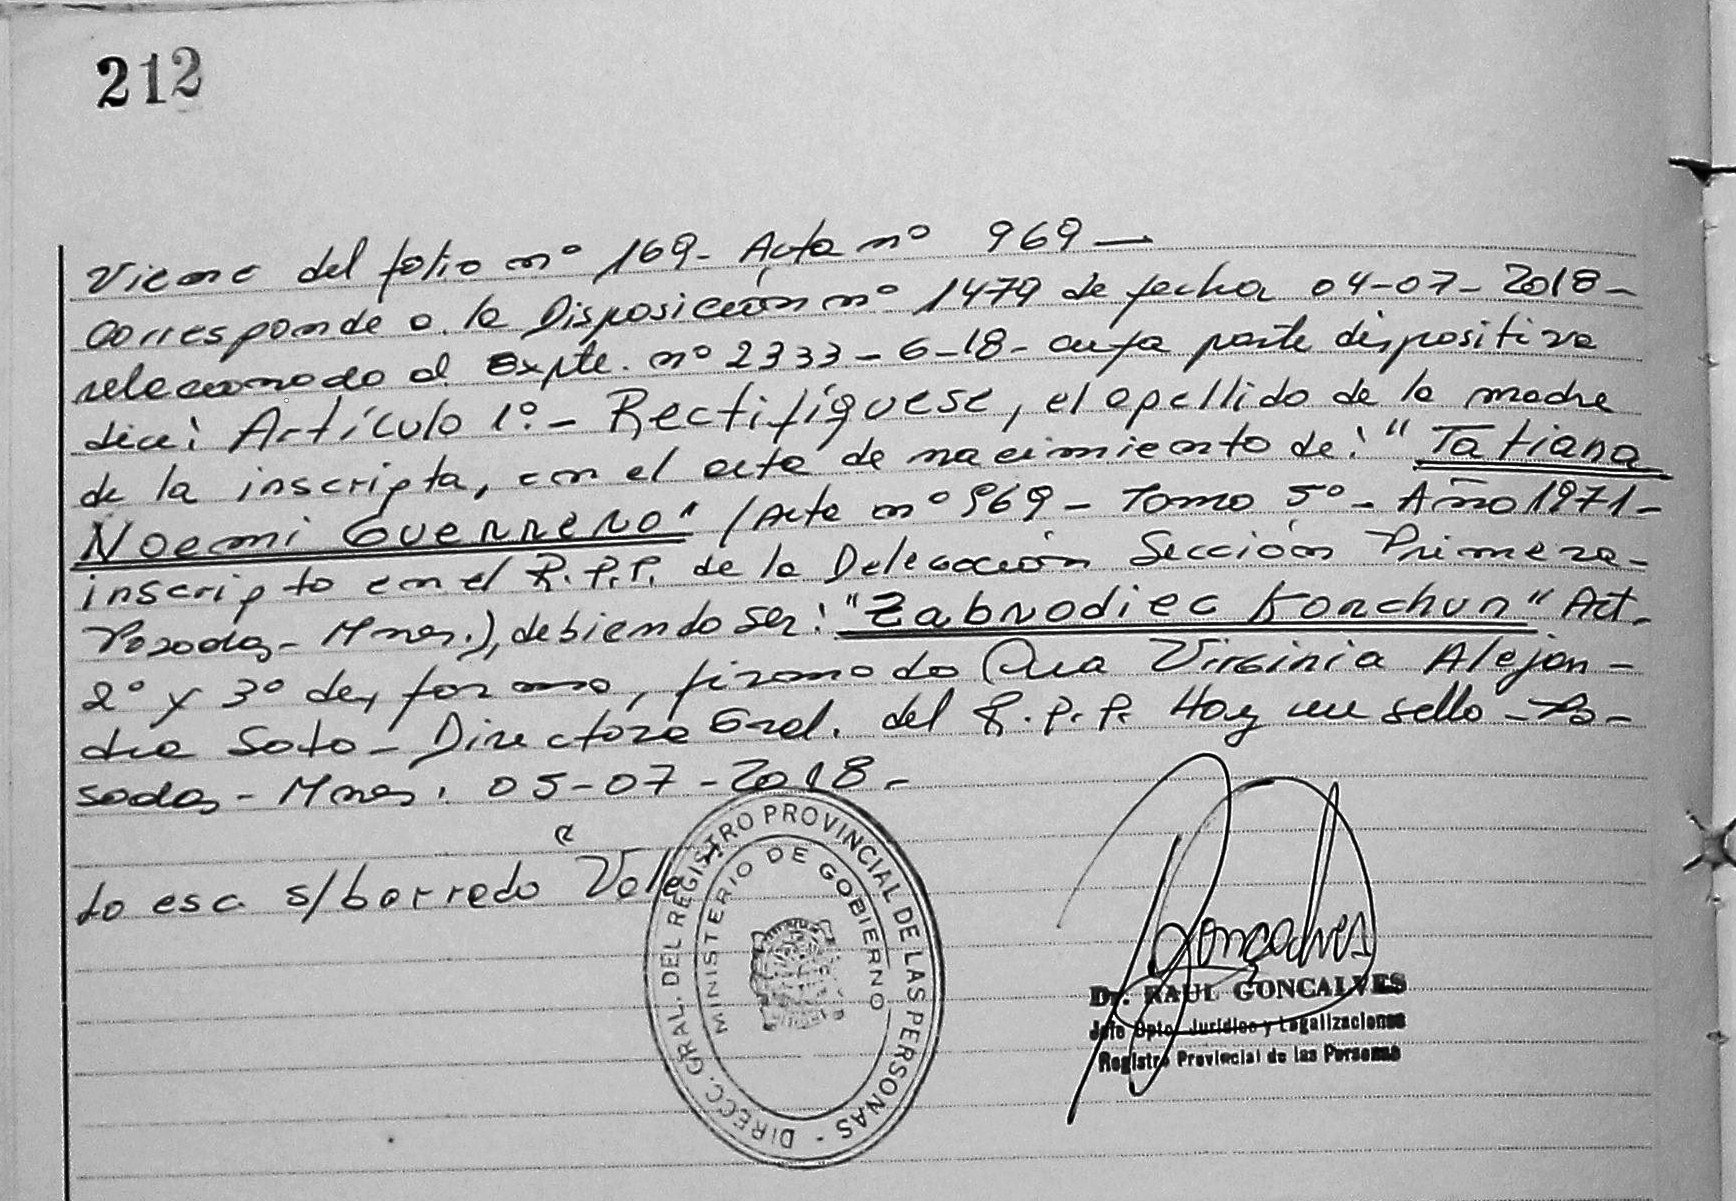 212
Viene del folio nº 169- Acta nº 969—
corresponde a la Disposición nº 1479 de fecha 04-07-2018-
relacionado al Expte. nº 2333-6-18- cuya parte dispositiva
dice: Artículo 1º.- Rectifíquese, el apellido de la madre
de la inscripta, en el acta de nacimiento de: "Tatiana
Noemi Guerrero" (Acta nº 969- Tomo 5º- Año 1971-
inscripto en el R.P.P. de la Delegación Sección Primera-
Posadas- Mnes.), debiendo ser: "Zabrodiec Korchun" Art.
2º y 3º de, forma, firmado Dra Virginia Alejan-
dra Soto- Directora Gral. del R.P.P. Hay un sello-Po-
sadas- Mnes. 05-07-2018-
lo esc. s/borrado Vale
DIRECC. GRAL. DEL REGISTRO PROVINCIAL DE LAS PERSONAS -
MINISTERIO DE GOBIERNO
Goncalves
Dr. RAUL GONCALVES
Jefe Dpto. Jurídico y Legalizaciones
Registro Provincial de las Personas